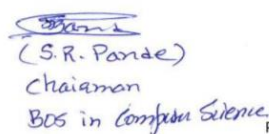 (S.R. Pande)
Chairman
BOS in Computer Science